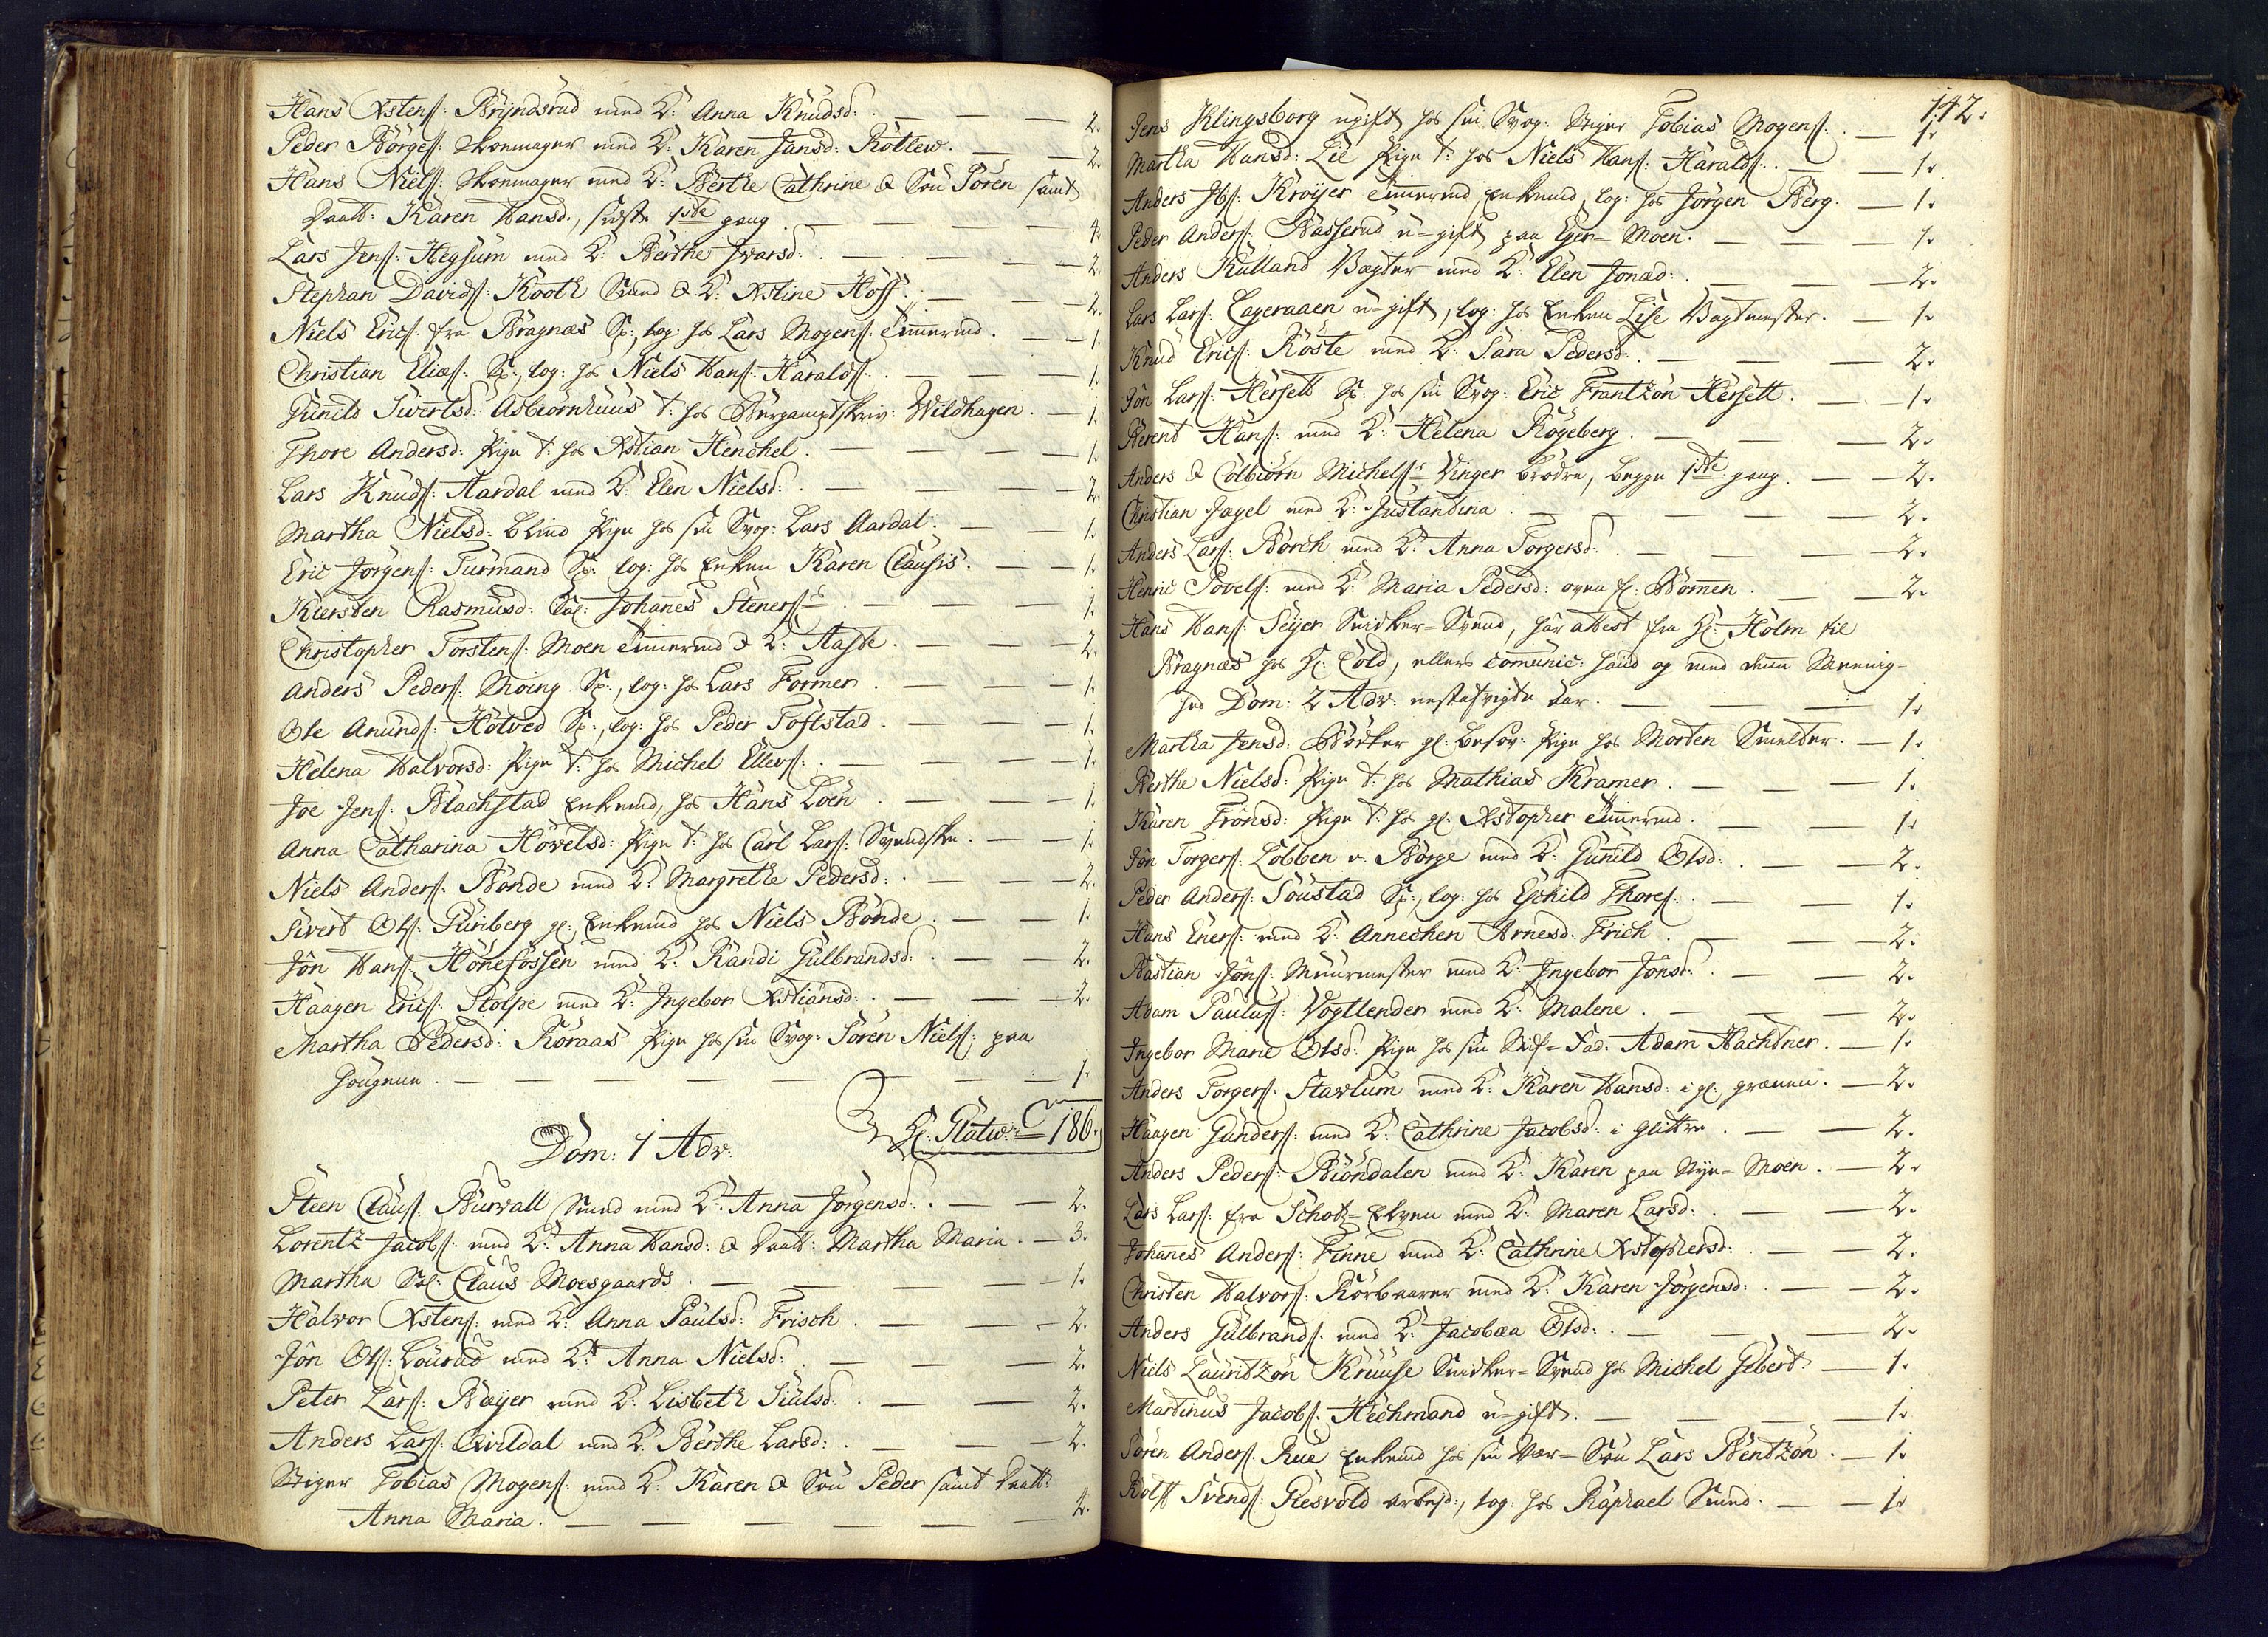 Hans Xstens: Bryndsrud med K: Anna Knudsd: . — — — 2.
Peder Börges: Skomager med K: Karen Jansd: Rotlew. — — 2.
Hans Niels: Skomager med K: Berthe Cathrine & Sön Sören samt
Daatt: Karen Hansd:, sidste 1ste gang . — — — — 4.
Lars Jens: Hegsum med K: Berthe Ivarsd: . — — — 2.
Stephan Davids: Kooth Smed & K: Xstine Hoff. — — — 2.
Niels Erics: fra Bragnæs S:, log: hos Lars Mogens: Timmermd. — — 1.
Christian Elias: S:, log: hos Niels Hans: Haralds: . — — 1.
Gunild Sivertsd: Asbiörnhuus t: hos Bergamptskriv: Wildhagen. — 1.
Thore Andersd: Pige t: hos Xstian Henchel. — — — — 1.
Lars Knuds: Aardal med K: Elen Nielsd: . — — — 2.
Martha Nielsd: blind Pige hos sin Svog: Lars Aardal. — — 1.
Eric Jörgens: Turmand S: log: hos Enken Karen Clausis. — — 1.
Kiersten Rasmusd: Sal: Johanes Steners: . — — — 1.
Christopher Torstens: Moen Timmermd & K: Aasse. — — — 2.
Anders Peders: Moing S:, log: hos Lars Former . — — — 1.
Ole Anunds: Hotved S:, log: hos Peder Toftstad . — — — 1.
Helena Halvorsd: Pige t: hos Michel Ellevs: . — — — 1.
Joe Jens: Blachstad Enkemd, hos Hans Loen . — — — 1.
Anna Catharina Hövelsd: Pige t: hos Carl Lars: Svendske. — — 1.
Niels Anders: Bonde med K: Margrethe Pedersd: . — — 2.
Sivert Ols: Guriberg gl: Enkemd hos Niels Bonde . — — 1.
Jon Hans: Hönefossen med K: Randi Gulbrandsd: . — — 2.
Haagen Erics: Stolpe med K: Ingebor Xstiansd: . — — 2.
Martha Pedersd: Röraas Pige hos sin Svog: Sören Niels: paa
Hougene. — — — — — — — 1.
H: Glatw: 186.
Dom: 1 Adv:
Steen Claus: Burvall Smed med K: Anna Jörgensd: . — — 2.
Lorentz Jacobs: med K: Anna Hansd: & Daatt: Martha Maria. — 3.
Martha Sal: Claus Moesgaards. — — — — 1.
Halvor Xstens: med K: Anna Paulsd: Frisch . — — — 2.
Jon Ols: Lourud med K: Anna Nielsd: . — — — 2.
Peter Lars: Bæyer med K: Lisbeth Siulsd: . — — — 2.
Anders Lars: Qvildal med K: Berthe Larsd: . — — — 2.
Stiger Tobias Mogens: med K: Karen & Sön Peder samt Daatt:
Anna Maria. — — — — — — 4.
142.
Jens Klingsborg ugift hos sin Svog: Stiger Tobias Mogens: . — 1.
Martha Hansd: Lie Pige t: hos Niels Hans: Haralds: . — — 1.
Anders Ibs: Kroyer Timmermd, Enkemd, log: hos Jörgen Berg. — 1.
Peder Anders: Basserud u=gift paa Eger=Moen. — — — 1.
Anders Rulland Vægter med K: Elen Jonæd: . — — — 2.
Lars Lars: Lageraaen u=gift, log: hos Enken Lise Vagtmester. — 1.
Knud Erics: Röste med K: Sara Pedersd: . — — — 2.
Jon Lars: Hersett S: hos sin Svog: Eric Frantzön Hersett. — — 1.
Berent Hans: med K: Helena Rogeberg. — — — 2.
Anders & Colbiörn Michels: Vinger brödre, begge 1ste gang. — — 2.
Christian Jagel med K: Justandina . — — — 2.
Anders Lars: Borch med K: Anna Torgersd: . — — — 2.
Henric Povels: med K: Maria Pedersd: oven f: Bommen. — — 2.
Hans Hans: Seyer Snidker=Svend, har attest fra H: Holm til
Bragnæs hos H: Cold, ellers comunic: hand og med denn Menig-
hed Dom: 2 Adv: nestafvigte aar. — — — 1.
Martha Jensd: Bödker gl: besov: Pige hos Morten Smelter. — 1.
Berthe Nielsd: Pige t: hos Mathias Kramer. — — — 1.
Karen Tronsd: Pige t: hos gl: Xstopher Timmermd. — — 1.
Jon Torgers: Lobben v. Börge med K: Gunild Olsd: . — — 2.
Peder Anders: Soustad S:, log: hos Eschild Thores: . — — 1.
Hans Eners: med K: Annechen Arnesd: Frich . — — 2.
Bastian Jöns: Muurmester med K: Ingebor Jönsd: . — — 2.
Adam Paulus: Vogtlender med K: Malene . — — — 2.
Ingebor Marie Olsd: Pige hos sin Stif=Fad: Adam Hachtner. — 1.
Anders Torgers: Stavlum med K: Karen Hansd: i gl: grænen. — 2.
Haagen Gunders: med K: Cathrine Jacobsd: i glittre . — — 2.
Anders Peders: Biöndalen med K: Karen paa Nye=Moen. — 2.
Lars Lars: fra Schotz=Elven med K: Maren Larsd: . — — 2.
Johanes Anders: Finne med K: Cathrine Xstophersd: . — — 2.
Christen Halvors: Körberer med K: Karen Jörgensd: . — — 2.
Anders Gulbrands: med K: Jacobæa Olsd: . — — — 2.
Niels Lauritzön Kruuse Snidker=Svend hos Michel Gebert. — 1.
Martinus Jacobs: Hechmand u=gift. — — — — 1.
Sören Anders: Rue Enkemd hos sin Vær=Sön Lars Bentzön. — 1.
Rolff Svends: Riesvold arbejd:, log: hos Raphael Smed. — — 1.